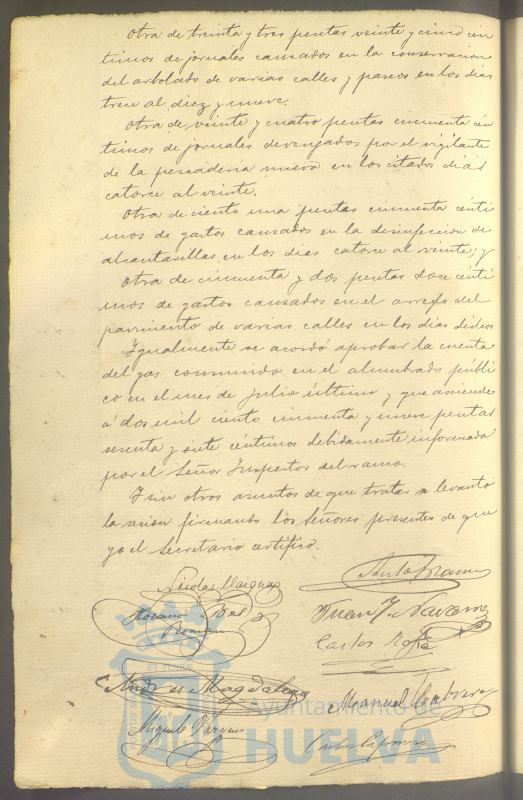 Otra de treinta y tres pesetas veinte y cinco cén
timos de jornales causados en la conservacion
del arbolado de varias calles y paseos en los dias
trece al diez y nueve.
Otra de veinte y cuatro pesetas cincuenta cén
timos de jornales devengados por el vigilante
de la pescadería nueva en los citados dias
catorce al veinte.
Otra de ciento una pesetas cincuenta cénti
mos de gastos causados en la desinfeccion de
alcantarillas en los dias catorce al veinte; y
Otra de cincuenta y dos pesetas doce cénti
mos de gastos causados en el arreglo del
pavimento de varias calles en los dias
Igualmente se acordó aprobar la cuenta
del gas consumido en el alumbrado públi
co en el mes de julio último y que asciende
á dos mil ciento cincuenta y nueve pesetas
sesenta y siete céntimos debidamente informada
por el Señor Inspector del ramo.
Y sin otros asuntos de que tratar se levantó
la sesion firmando los Señores presentes de que
yo el Secretario certifico.
Nicolas
Antº
Horacio Bel y
Roman
Juan J. Navarro
Carlos
Andres Magdaleno
Manuel
Miguel
Ayuntamiento de
HUELVA